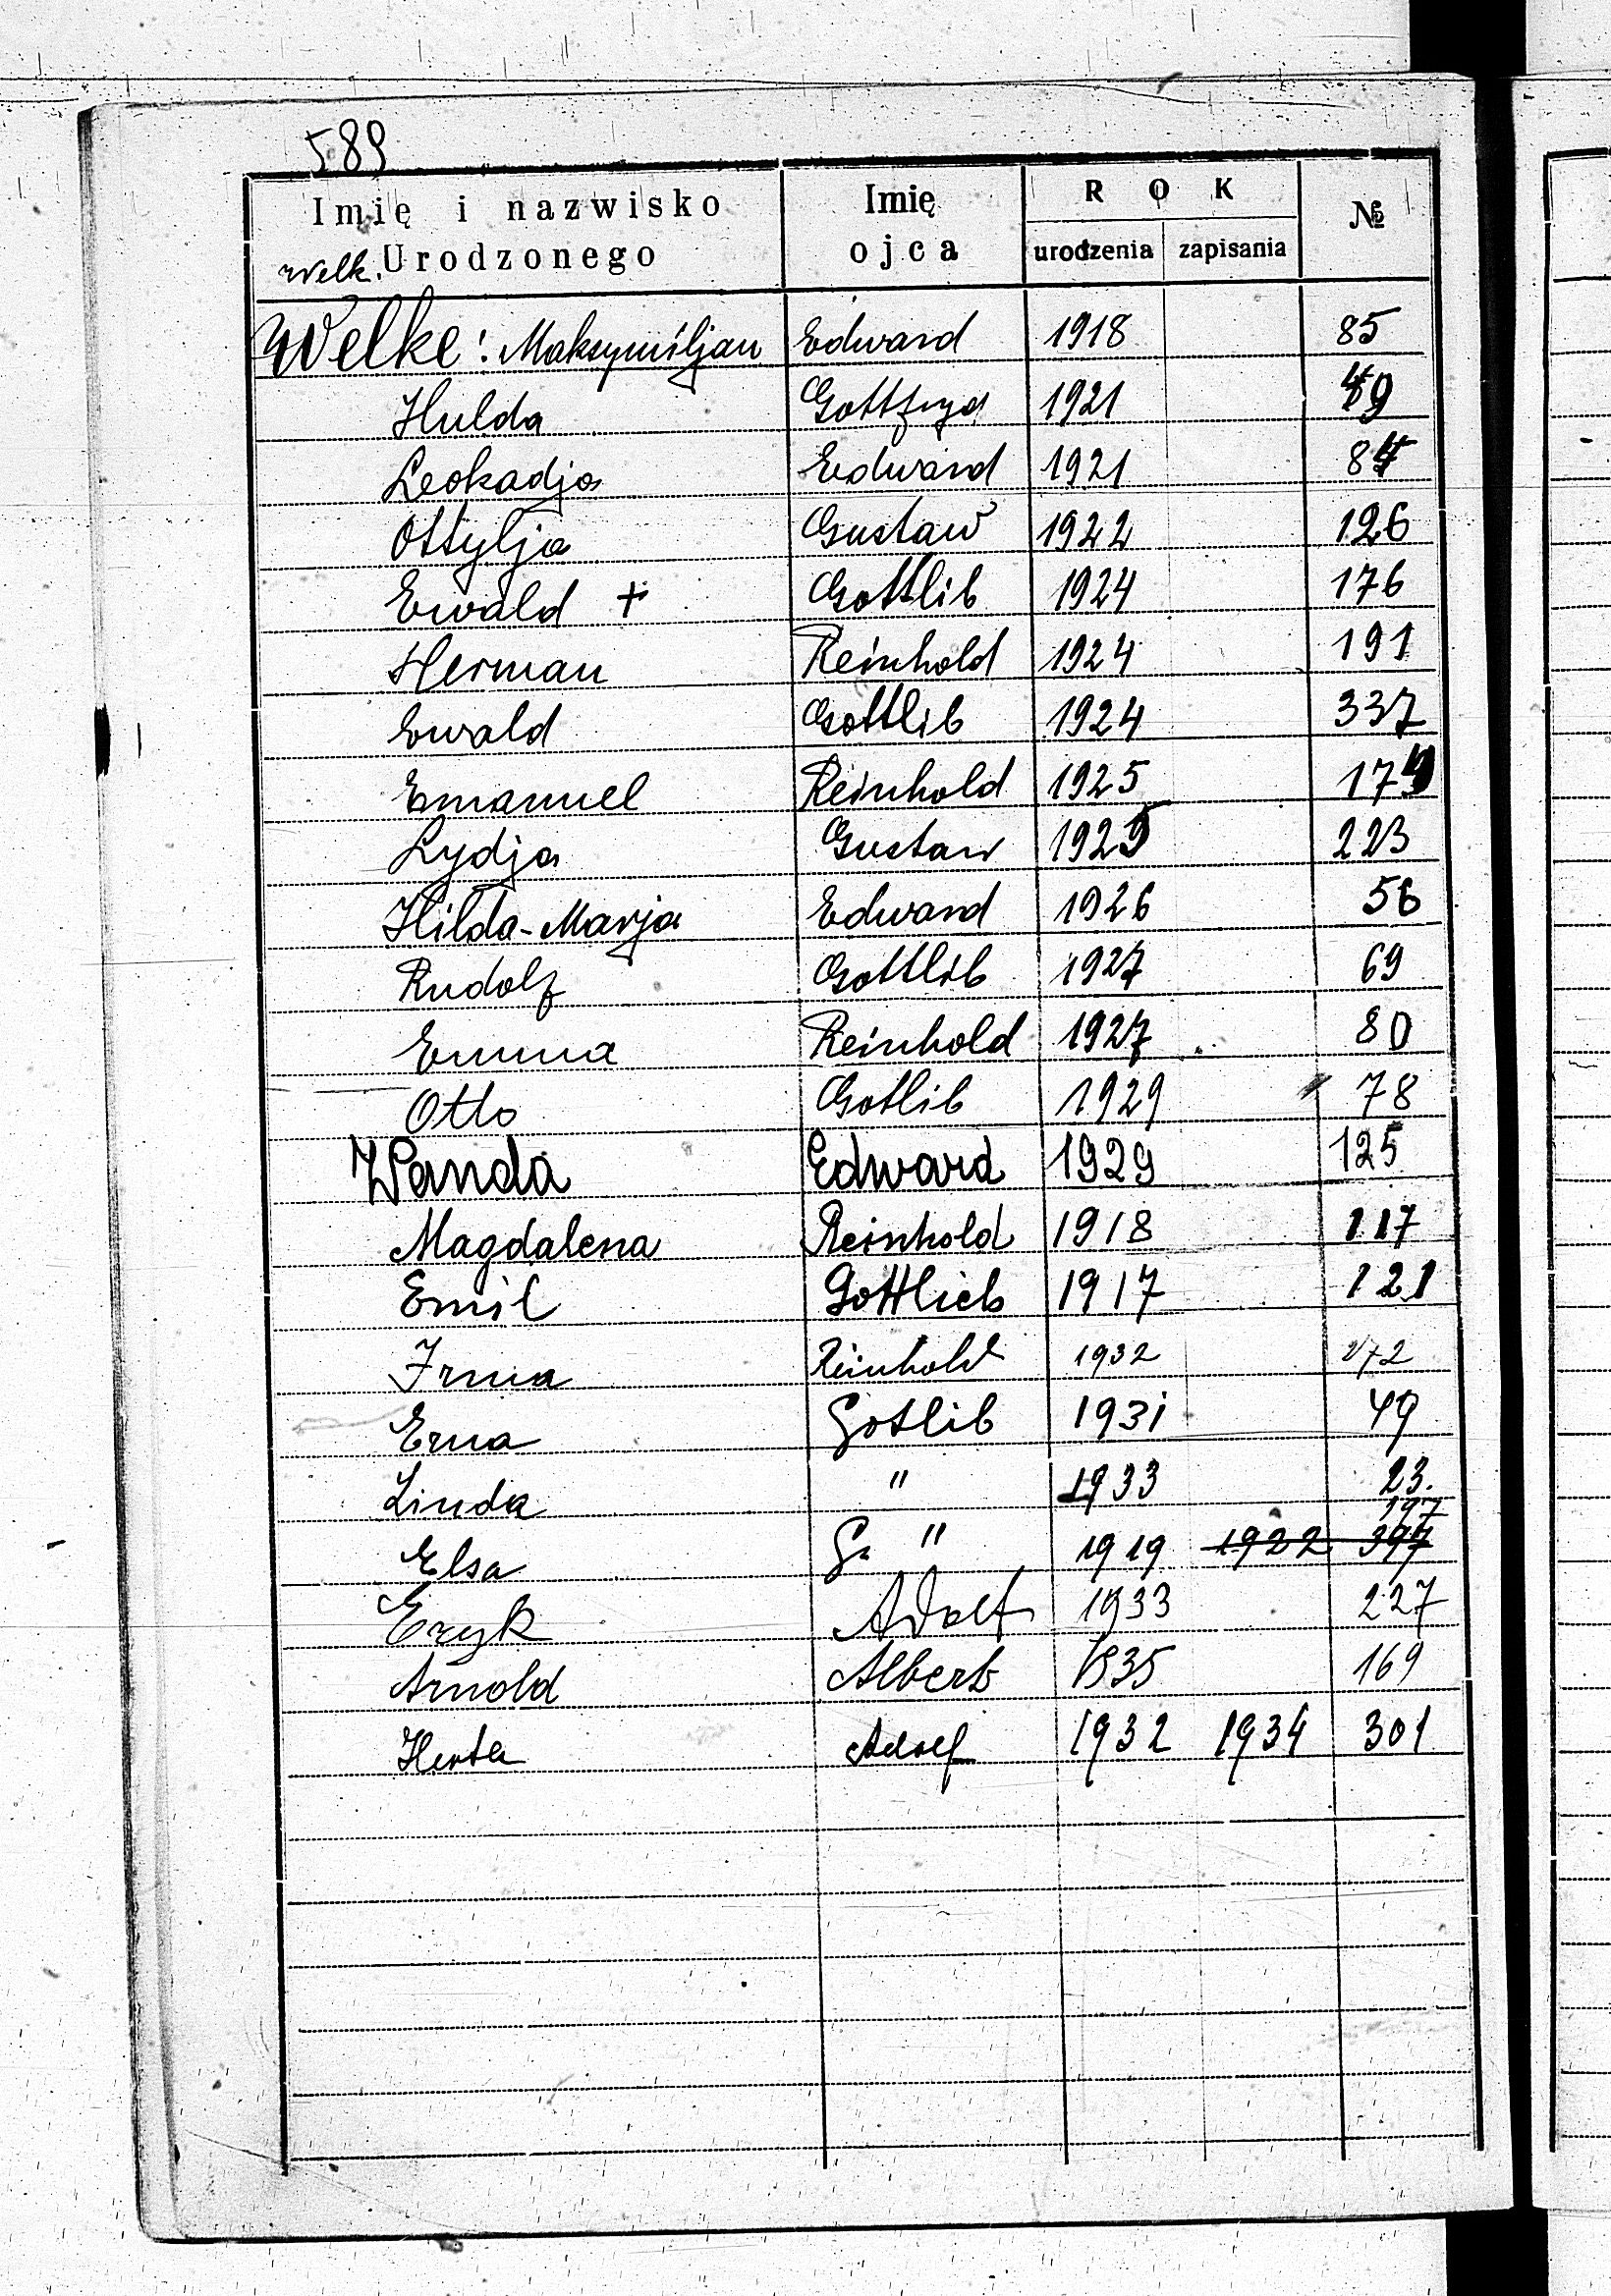 589
Imię i nazwisko Imię ROK №
Welk. Urodzonego ojca urodzenia zapisania
Welke: Maksymiljan Edward 1918 85
Hulda Gottfryd 1921 49
Leokadja Edward 1921 84
Ottylja Gustaw 1922 126
Ewald + Gottlib 1924 176
Herman Reinhold 1924 191
Ewald Gottlib 1924 337
Emanuel Reinhold 1925
Lydja Gustaw 1925 223
Hilda-Marja Edward 1926 56
Rudolf Gottlib 1927 69
Emma Reinhold 1927 80
Otto Gotlib 1929 78
Wanda Edward 1929 125
Magdalena Reinhold 1918 117
Emil Gottlieb 1917 121
Irma Reinhold 1932
Erna Gotlib 1931 49
Linda " 1933 23.
197
Elsa G. " 1919 1922 397
Eryk Adolf 1933 227
Arnold Albert 1935 169
Herta Adolf 1932 1934 301